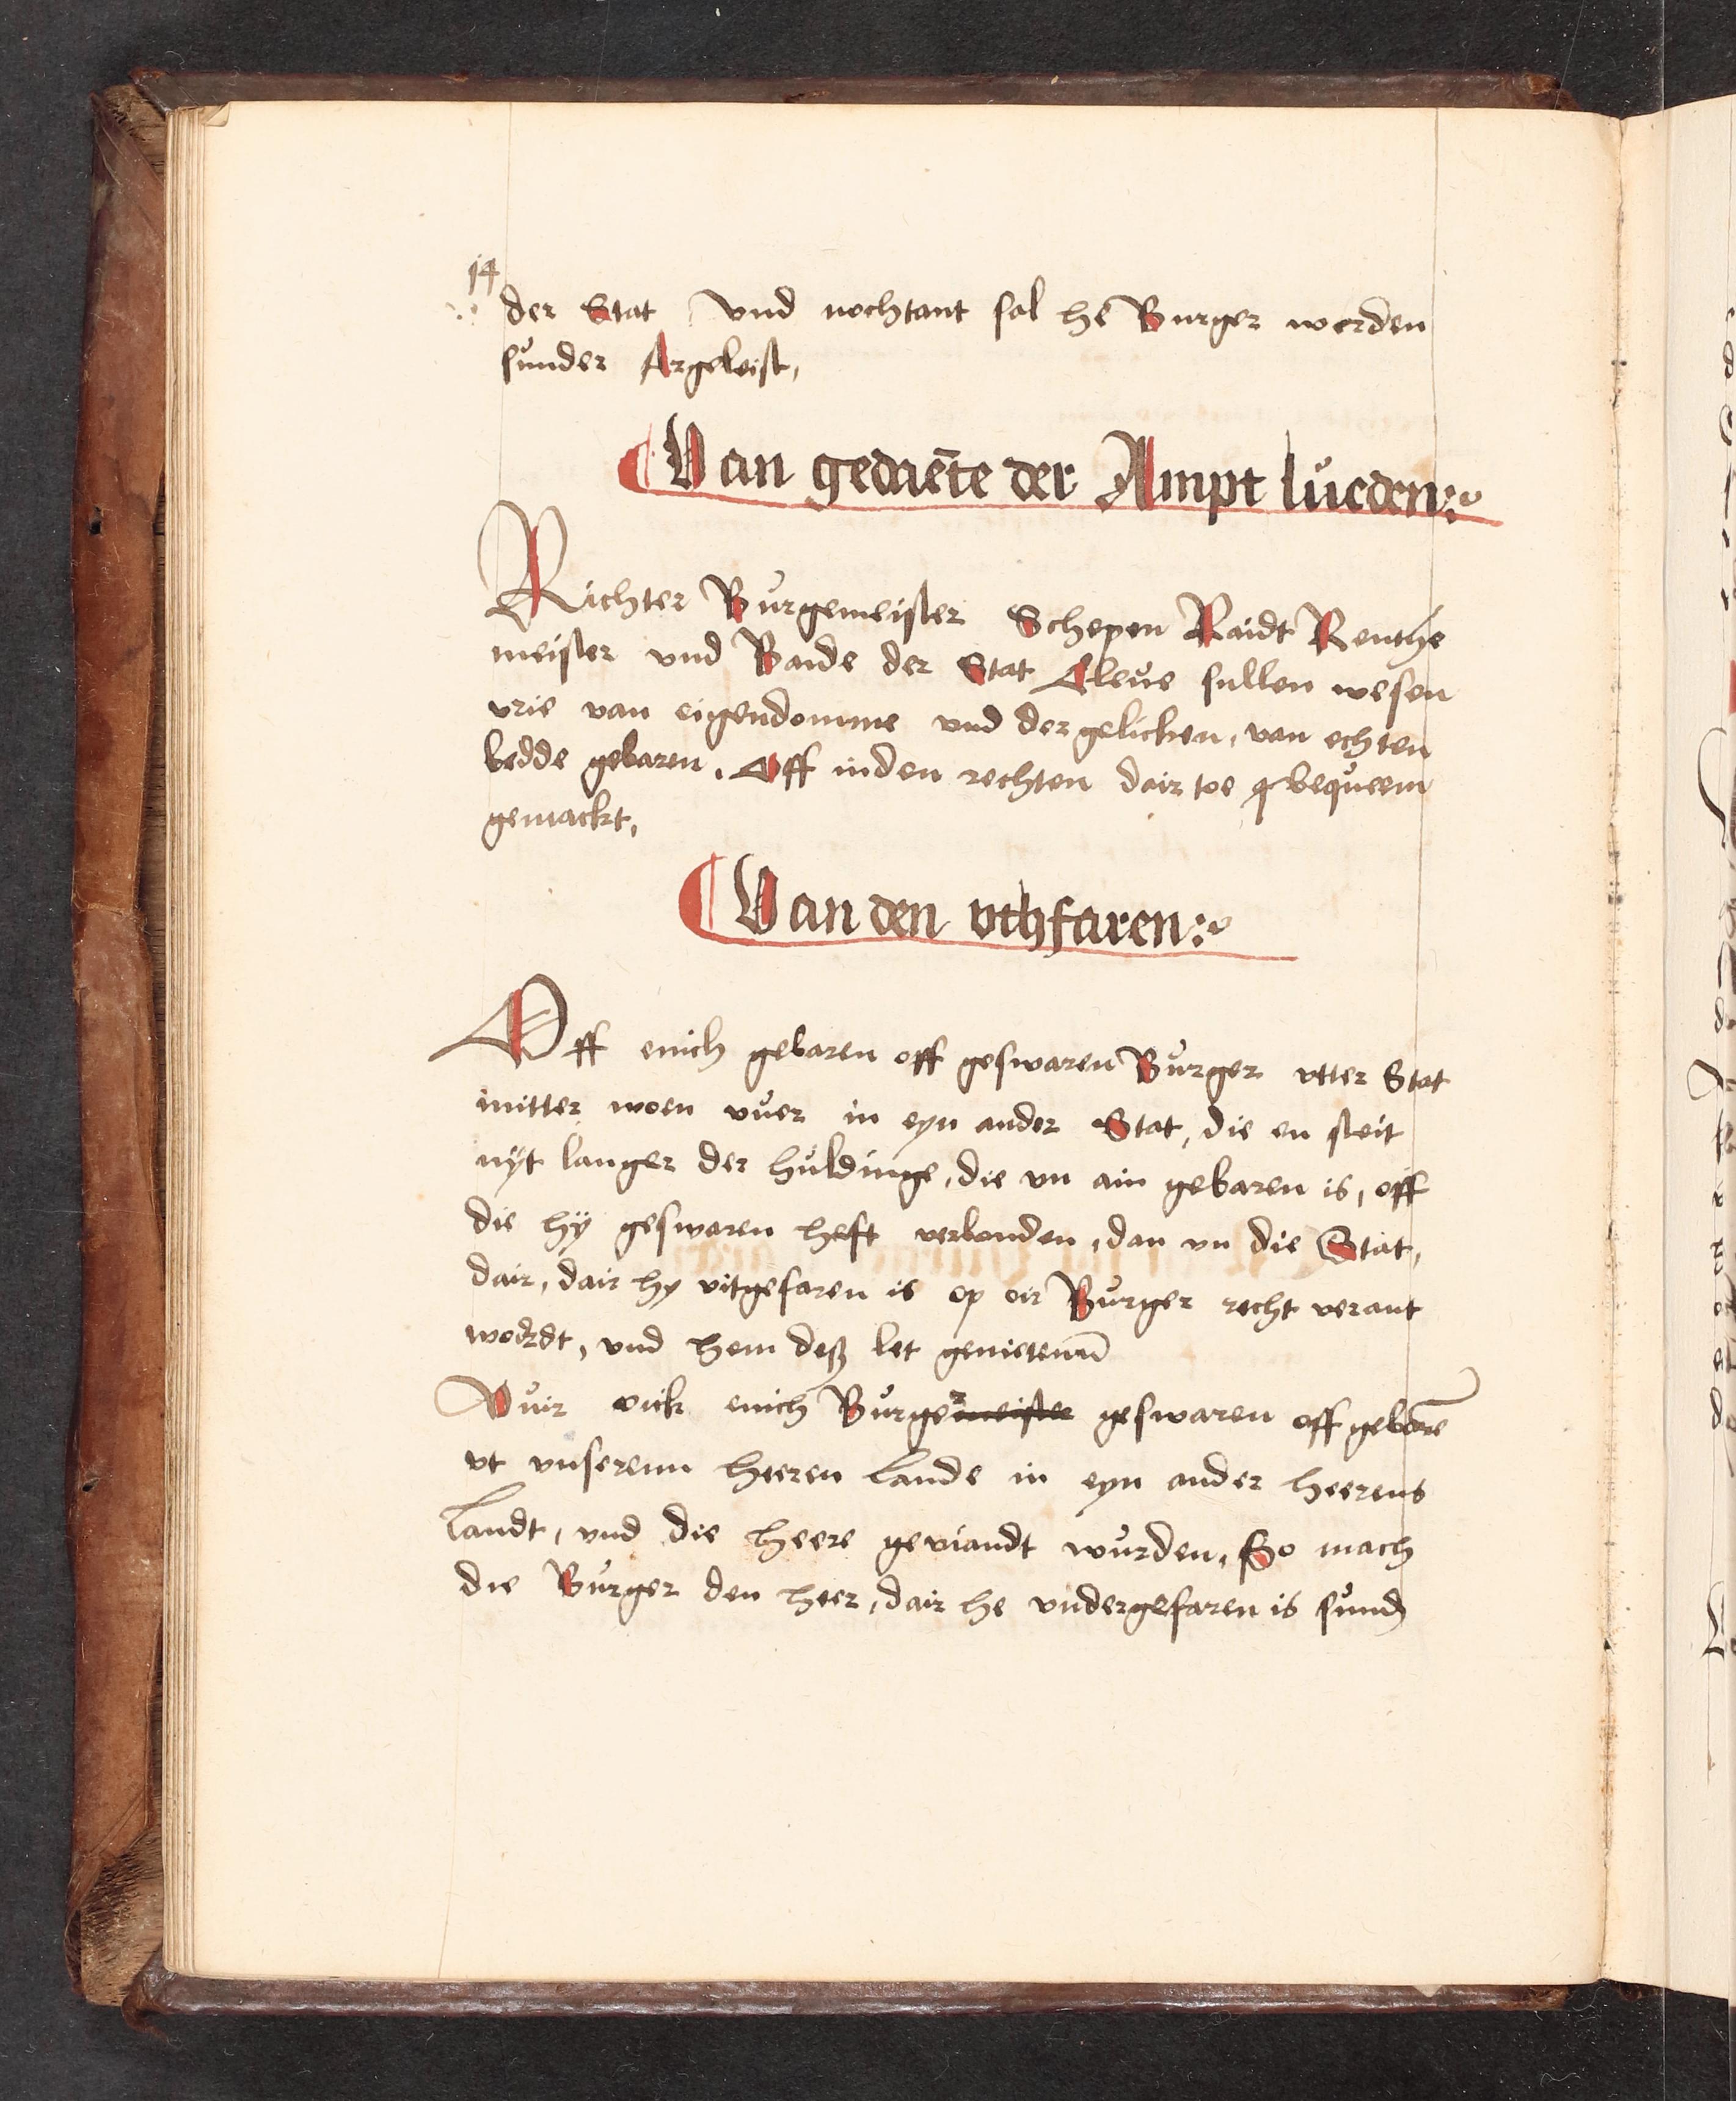 14
der Stat, Vnd nochtant sal he Burger werden
sunder Argeleist,
Van gedaēte der Ampt lueden
Richter Burgemeister Schepen Raidt Renthe
meister vnd Bade der Stat Cleue sullen wesen
vrie van eigendomme vnd dergelicken, van echten
bedde gebaren, Off inden rechten dair toe bequeem
gemackt,
Van den vthfaren
Off enich gebaren off geswaren Burger vtter Stat
mitter woen vuer in eyn ander Stat, die en steit
nyt langer der huldinge, die vn ain gebaren is, off
die hÿ geswaren heft verbonden, dan vn die Stat,
dair, dair hy vitgefaren is op oir Burger recht verant
wordt, vnd hem deß let genietenn
Vuir oick enich Burger geswaren off geborē
vt vnserenn heeren lande in eyn ander heerens
landt, vnd die heere geviandt wurden, So mach
die Burger den heer, dair he vndergefaren is sund